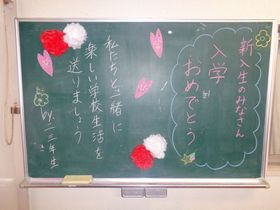 新入生のみなさん
入学
おめでとう
私たちと一緒に
楽しい学校生活を
送りましょう
by.二三年生